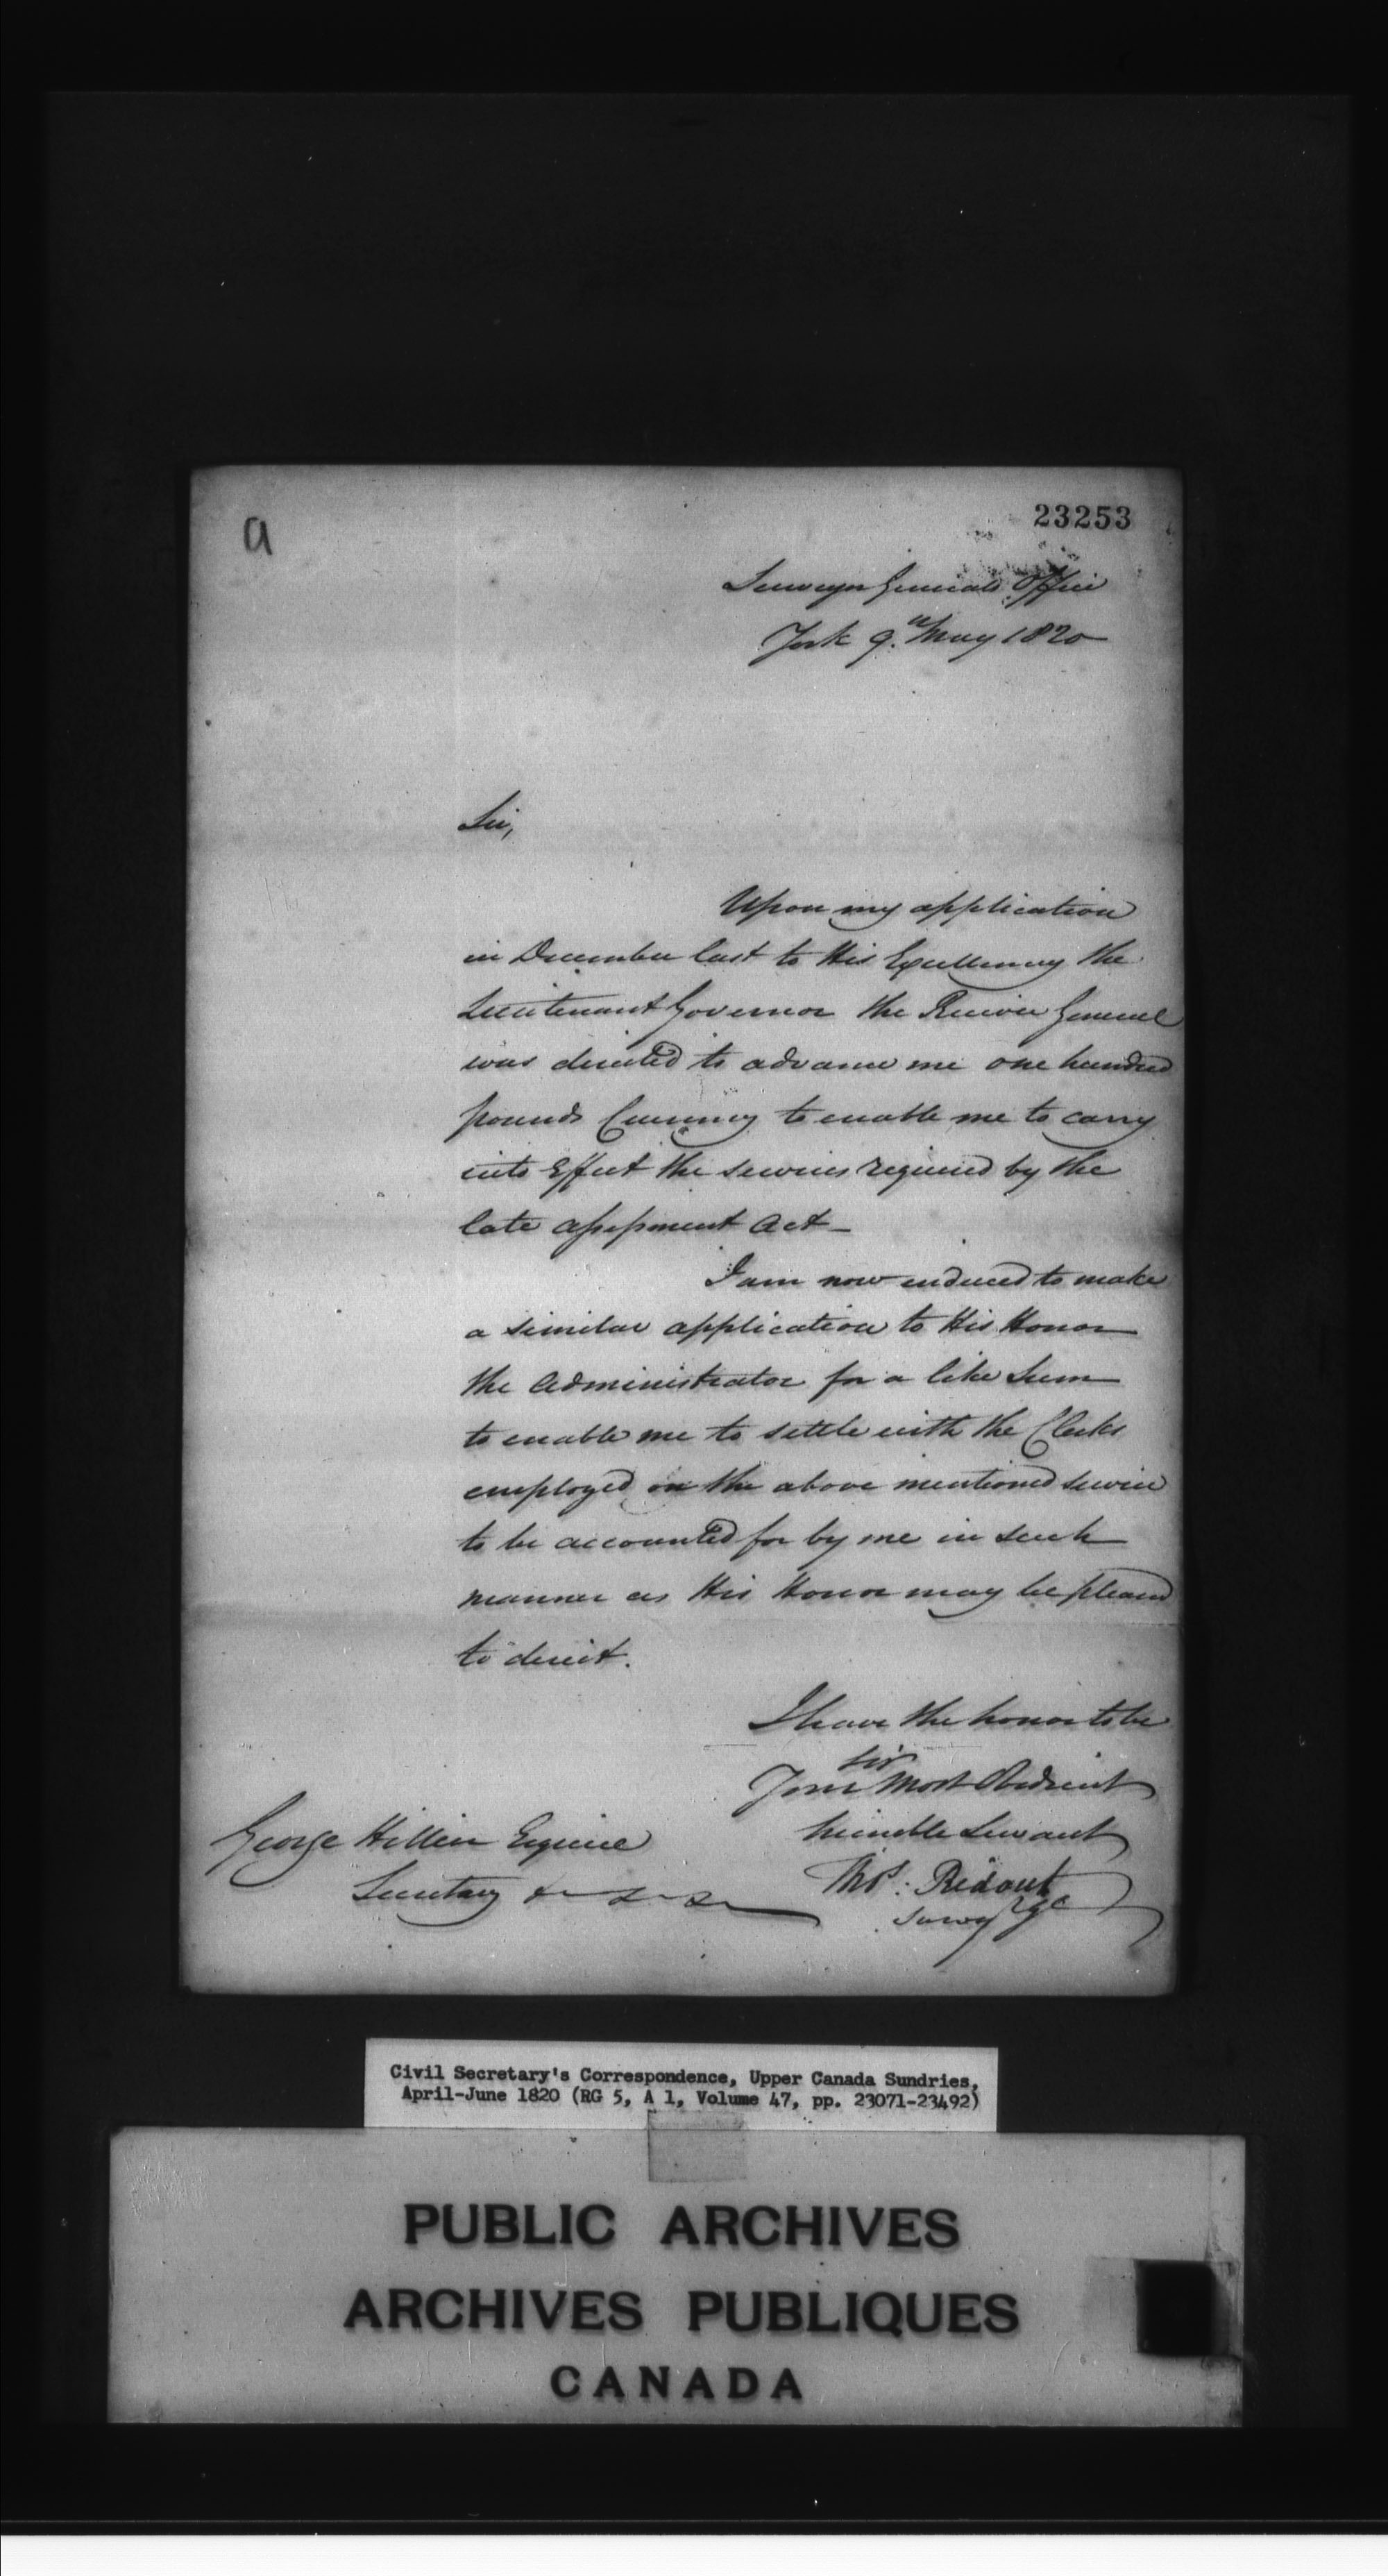 a
23253
Surveyor Generals Office
York 9.th May 1820
Sir,
Upon my application
in December last to His Excellency the
Lieutenant Governor the Receiver General
was directed to advance me one hundred
pounds Currency to enable me to carry
into Effect the services required by the
late assessment Act _
I am now induced to make
a similar application to His Honor
the Administrator for a like Sum
to enable me to settle with the Clerks
employed on the above mentioned service
to be accounted for by me in such
manner as His Honor may be pleased
to direct.
I have the honor to be
Sir
Your Most Obedient
humble Servant
Thos: Ridout
Survr Gl
George Hillier Esquire
Secretary &c &c &c
Civil Secretary's Correspondence, Upper Canada Sundries,
April-June 1820 (RG 5, A 1, Volume 47, pp. 23071-23492)
PUBLIC ARCHIVES
ARCHIVES PUBLIQUES
CANADA